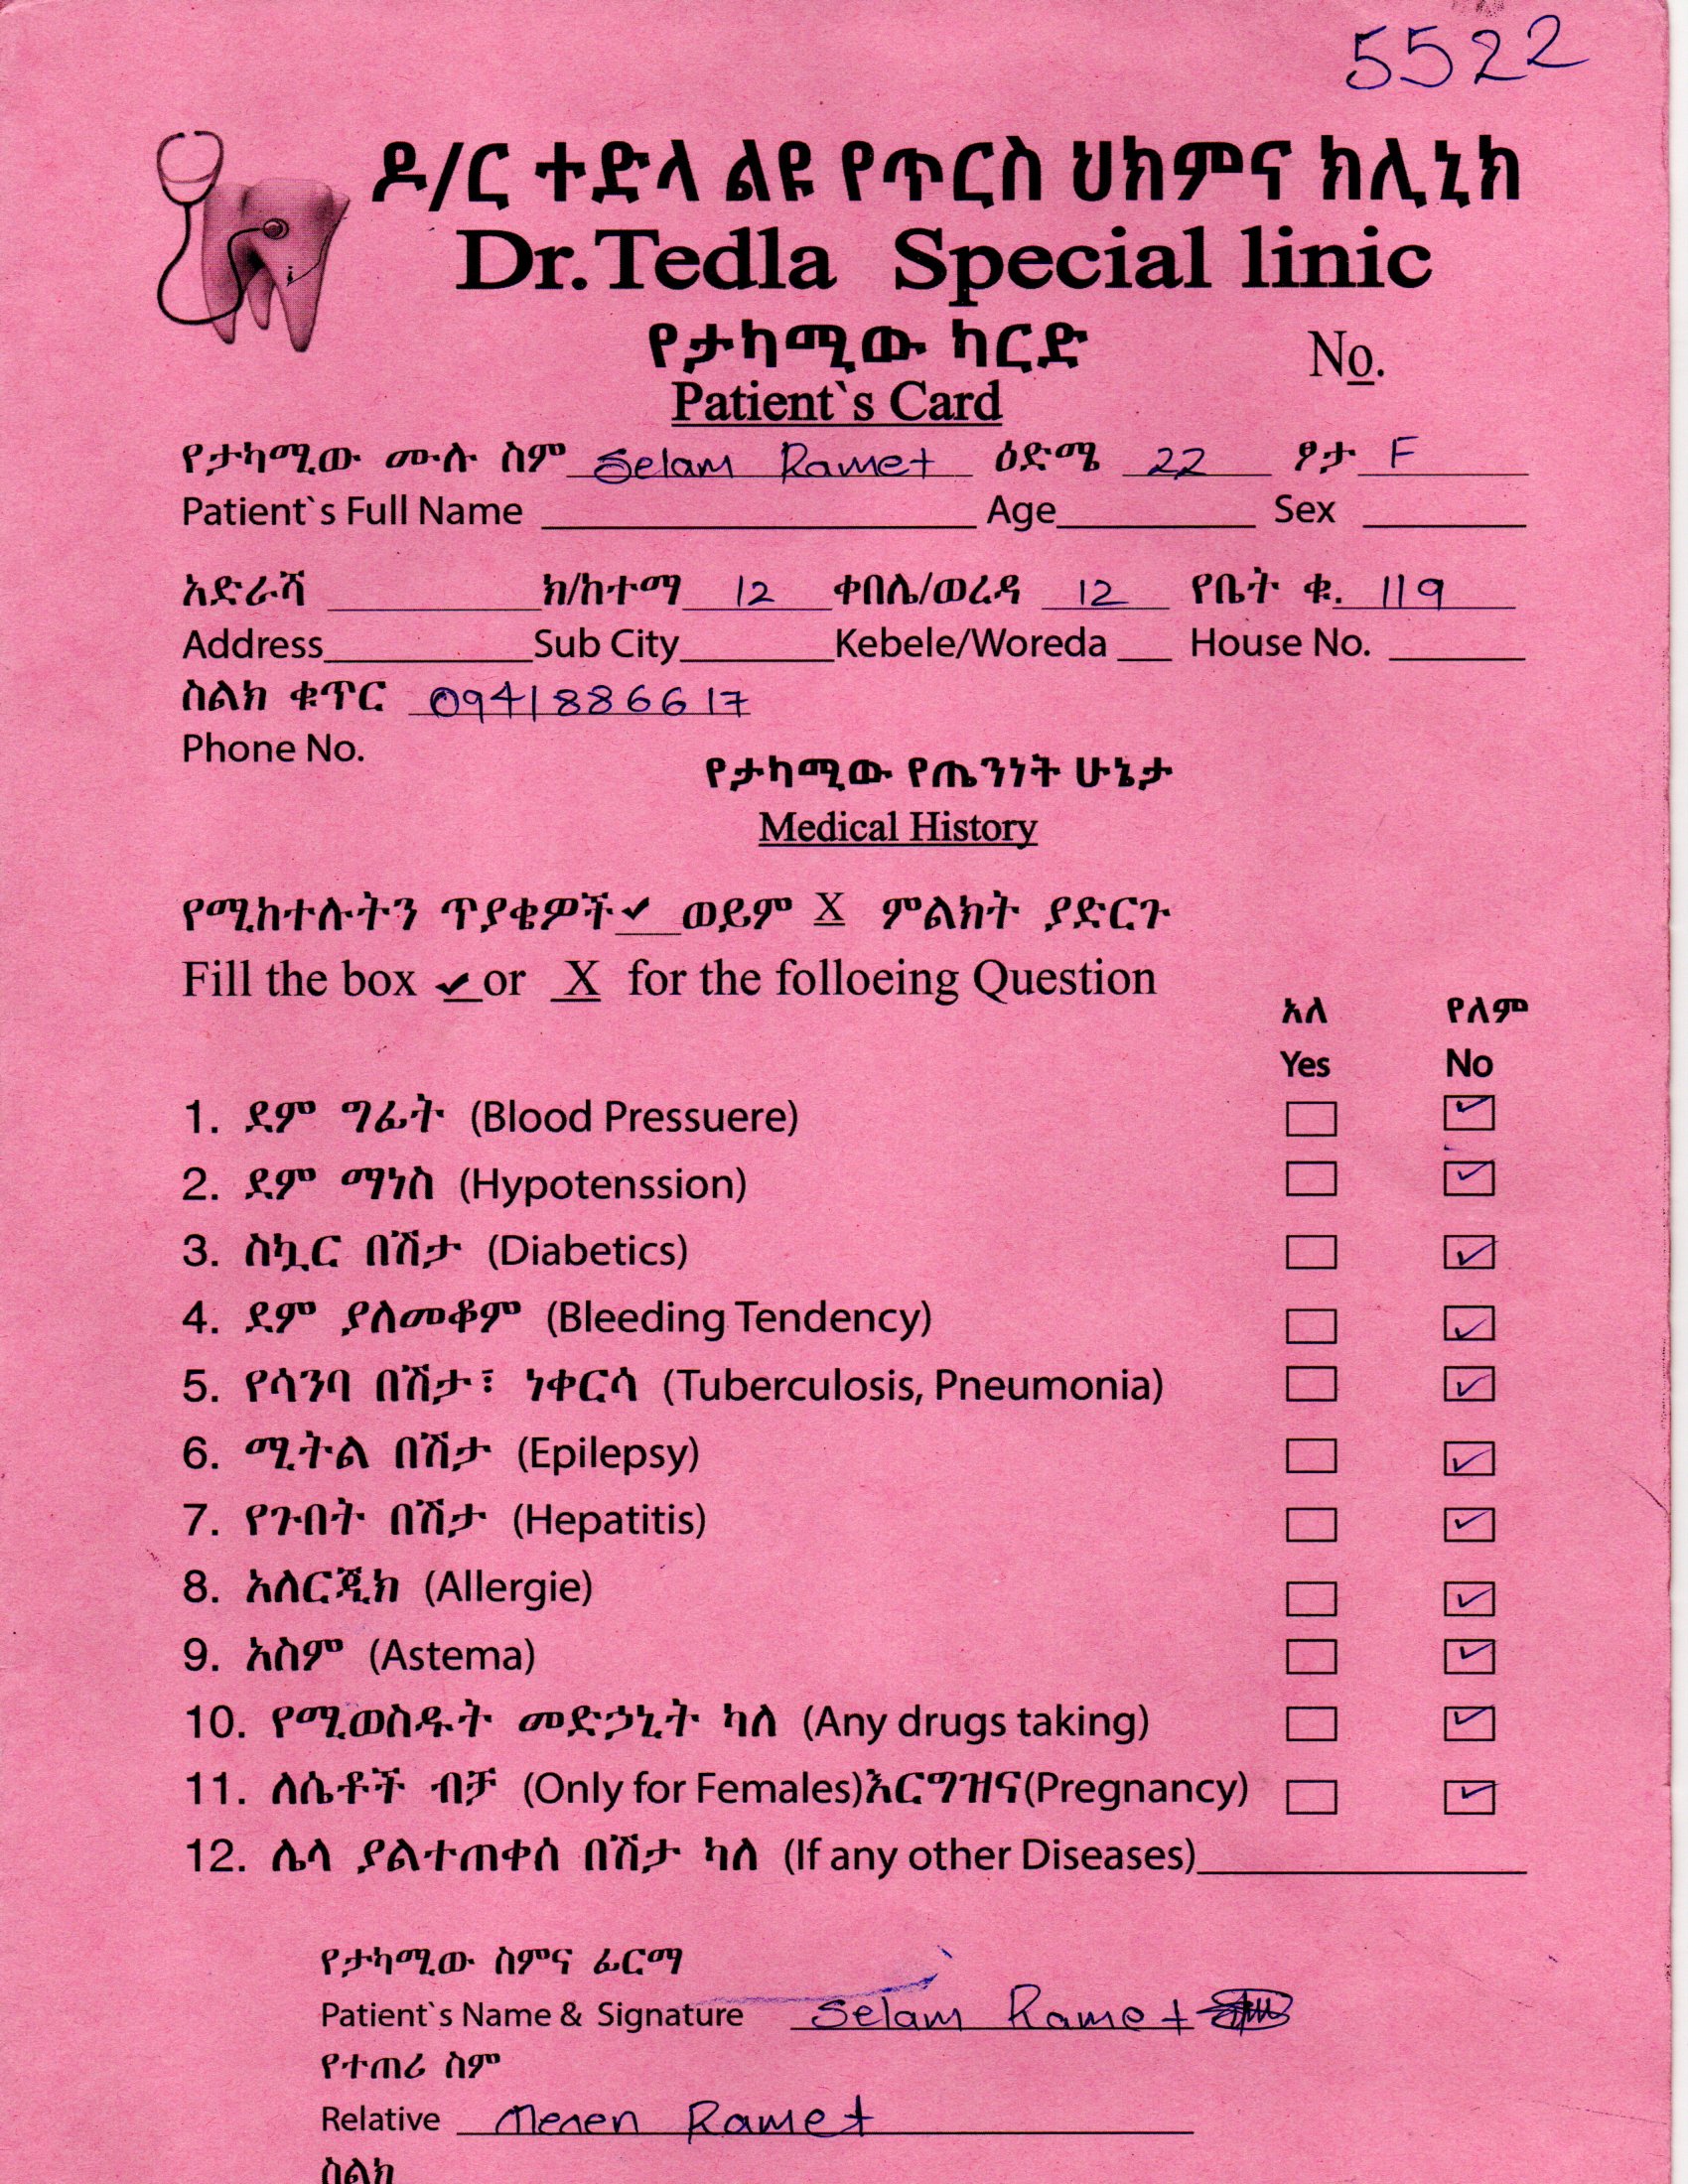 5522
ዶ/ር ተድላ ልዩ የጥርስ ህክምና ክሊኒክ
Dr.Tedla Special linic
የታካሚው ካርድ
No.
Patient`s Card
የታካሚው ሙሉ ስም Selam Ramet ዕድሜ 22 ፆታ F
Patient`s Full Name Age Sex
አድራሻ ክ/ከተማ 12 ቀበሌ/ወረዳ 12 የቤት ቁ. 119
Address Sub City Kebele/Woreda House No.
ስልክ ቁጥር 0941886617
Phone No.
የታካሚው የጤንነት ሁኔታ
Medical History
የሚከተሉትን ጥያቄዎች ✔ ወይም X ምልክት ያድርጉ
Fill the box ✔ or X for the folloeing Question
አለ የለም
Yes No
1. ደም ግፊት (Blood Pressuere) ☐ ☑
2. ደም ማነስ (Hypotenssion) ☐ ☑
3. ስኳር በሽታ (Diabetics) ☐ ☑
4. ደም ያለመቆም (Bleeding Tendency) ☐ ☑
5. የሳንባ በሽታ፣ ነቀርሳ (Tuberculosis, Pneumonia) ☐ ☑
6. ሚትል በሽታ (Epilepsy) ☐ ☑
7. የጉበት በሽታ (Hepatitis) ☐ ☑
8. አለርጂክ (Allergie) ☐ ☑
9. አስም (Astema) ☐ ☑
10. የሚወስዱት መድኃኒት ካለ (Any drugs taking) ☐ ☑
11. ለሴቶች ብቻ (Only for Females)እርግዝና(Pregnancy) ☐ ☑
12. ሌላ ያልተጠቀሰ በሽታ ካለ (If any other Diseases)
የታካሚው ስምና ፊርማ
Patient`s Name & Signature Selam Ramet
የተጠሪ ስም
Relative Menen Ramet
ስልክ